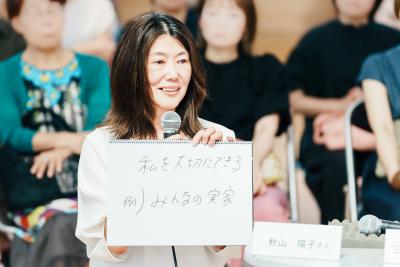 私を大切にできる
例) みんなの実家
秋山 陽子さん
三